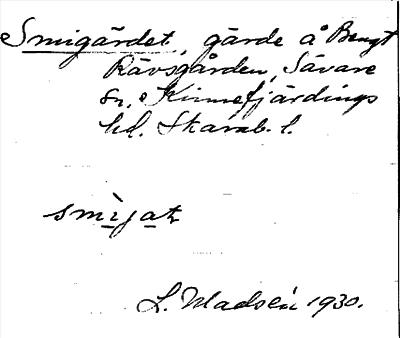 Smigärdet, gärde å Bengt
Rävsgården, Sävare
sn, Kinnefjärdings
hd. Skarab. l.
smìjat
L. Madsén 1930.